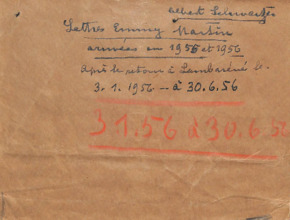 Albert Schweitzer
Lettres Emmy Martin
arrivées en 1956 et 1956
après le retour à Lambaréné le
3. 1. 1956 -- à 30.6.56
31.56 à 30.6.56